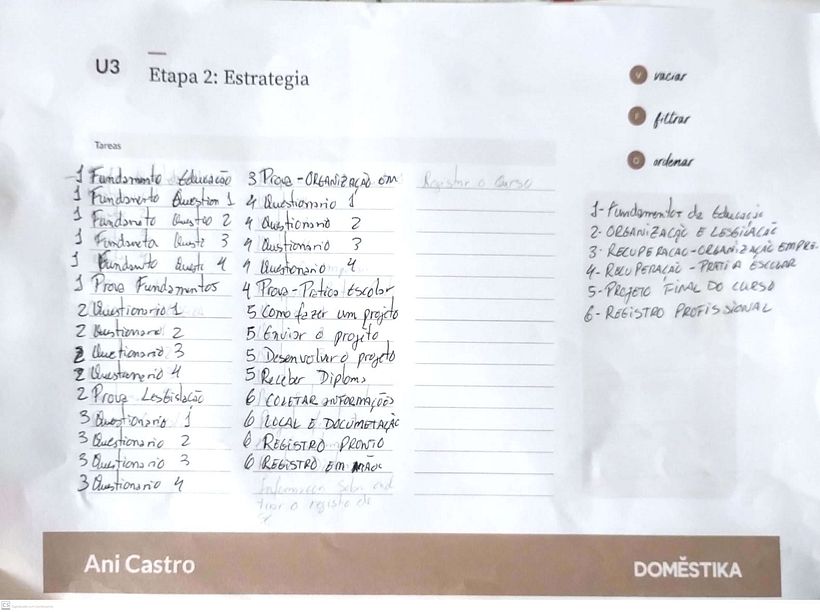 U3
Etapa 2: Estrategia
vaciar
filtrar
ordenar
Tareas
1 Fundamento Educação
1 Fundamento Question 1
1 Fundaneto Questão 2
1 Fundaneta Questi 3
1 Fundamto Questi 4
1 Prova Fundamentos
2 Questionario 1
2 Questionario 2
2 Questionario 3
2 Questionario 4
2 Prova Lesgislação
3 Questionario 1
3 Questionario 2
3 Questionario 3
3 Questionario 4
3 Prova - ORGANIZAÇÃO EM
4 Questionario 1
4 Questionario 2
4 Questionario 3
4 Questionario 4
4 Prova - Pratica Escolar
5 Como fazer um projeto
5 Enviar o projeto
5 Desenvolver o projeto
5 Receber Diploma
6 COLETAR INFORMAÇÕES
6 LOCAL E DOCUMETAÇÃO
6 REGISTRO PRONTO
6 REGISTRO EM MÃOS
o registro de
Registrar o Curso
1- Fundamentos da Educação
2- ORGANIZAÇÃO E LESGILAÇÃO
3- RECUPERACAO - ORGANIZAÇÃO EMPRE.
4- RECUPERAÇÃO - PRATICA ESCOLAR
5- PROJETO FINAL DO CURSO
6- REGISTRO PROFISSIONAL
Ani Castro
DOMĚSTIKA